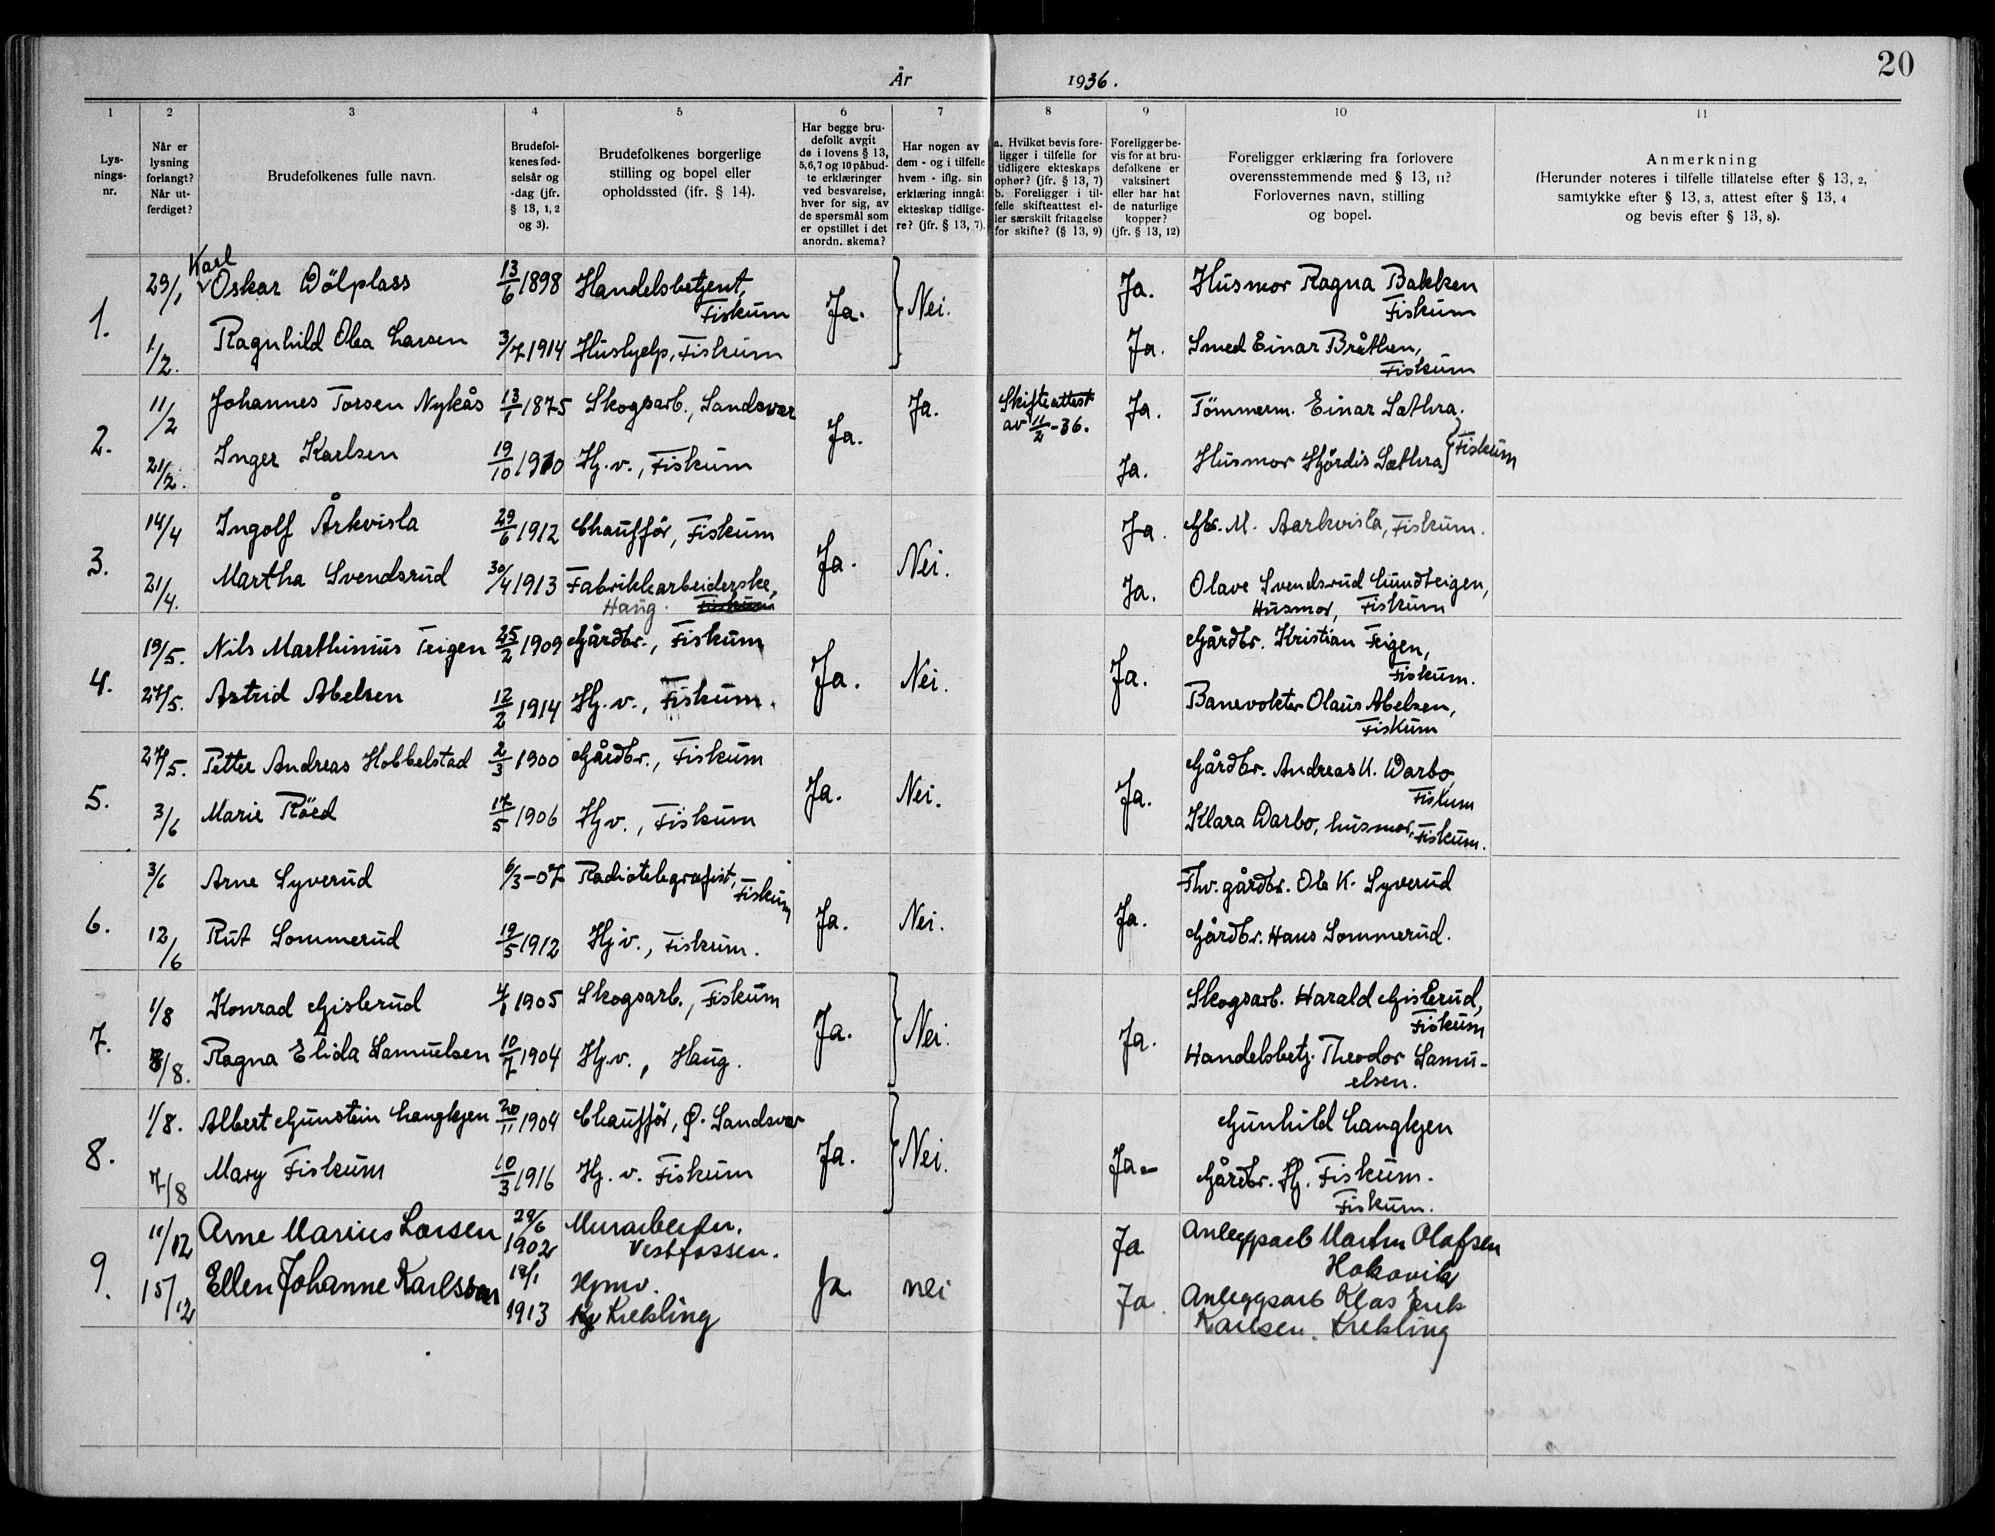 20
År 1936.
1 2 3 4 5 6 7 8 9 10 11
Lys-
nings-
nr.
Når er
lysning
forlangt?
Når ut-
ferdiget?
Brudefolkenes fulle navn.
Brudefol-
kenes fød-
selsår og
-dag (jfr.
§ 13, 1, 2
og 3).
Brudefolkenes borgerlige
stilling og bopel eller
opholdssted (ifr. § 14).
Har begge bru-
defolk avgit
de i lovens § 13,
5,6,7 og 10 påbud-
te erklæringer
ved besvarelse,
hver for sig, av
de spørsmål som
er opstillet i det
anordn. skema?
Har nogen av
dem - og i tilfelle
hvem - iflg. sin
erklæring inngåt
ekteskap tidlige-
re? (jfr. § 13, 7).
a. Hvilket bevis fore-
ligger i tilfelle for
tidligere ekteskaps
ophør? (jfr. § 13, 7)
b. Foreligger i til-
felle skifteattest el-
ler særskilt fritagelse
for skifte? (§ 13, 9)
Foreligger be-
vis for at bru-
defolkene er
vaksinert
eller har hat
de naturlige
kopper?
(jfr. § 13, 12)
Foreligger erklæring fra forlovere
overensstemmende med § 13, 11?
Forlovernes navn, stilling
og bopel.
Anmerkning
(Herunder noteres i tilfelle tillatelse efter § 13, 2,
samtykke efter § 13, 3, attest efter § 13, 4
og bevis efter § 13, 8).
Karl
29/1 Oskar Dölplass 13/6 1898 Handelsbetjent, Ja. Husmor Ragna Bakken
Fiskum Fiskum
1. Ja. Nei.
1/2. Ragnhild Olea Larsen 3/7 1914 Hushjelp, Fiskum Ja. Smed Einar Bråthen,
Fiskum
11/2 Johannes Torsen Nykås 13/1 1875 Skogsarb., Sandsvær Ja. Skifteattest Ja. Tömmerm. Einar Sæthra.
av 11/2-36.
2. Ja. Fiskum
21/2. Inger Karlsen 19/10 1910 Hj. v., Fiskum Ja. Husmor Hjördis Sæthra
14/4 Ingolf Årkvisla 29/6 1912 Chaufför, Fiskum Ja. Gbr. M. Aarkvisla, Fiskum.
3. Ja. Nei.
21/4. Martha Svendsrud 30/4 1913 Fabrikkarbeiderske, Ja. Olave Svendsrud Lundteigen,
Haug. Fiskum Husmor, Fiskum
19/5. Nils Marthinius Teigen 25/2 1909 Gårdbr., Fiskum Gårdbr. Kristian Teigen,
Fiskum.
4. Ja. Nei. Ja.
27/5. Astrid Abelsen 12/2 1914 Hj. v., Fiskum. Banevokter Olaus Abelsen,
Fiskum
27/5. Petter Andreas Hobbelstad 2/3 1900 Gårdbr., Fiskum Gårdbr. Andreas U. Darbo,
Fiskum
5. Ja. Nei. Ja.
3/6 Marie Röed 17/5 1906 Hj v., Fiskum Klara Darbo, husmor, Fiskum.
3/6 Arne Syverud 6/3-07 Radiotelegrafist, Fhv. gårdbr. Ole K. Syverud
Fiskum
6. Ja. Nei. Ja.
12/6 Rut Sommerud 19/5 1912 Hj v., Fiskum. Gårdbr. Hans Sommerud.
1/8 Konrad Gislerud 4/1 1905 Skogsarb., Fiskum Skogsarb. Harald Gislerud,
Fiskum
7. Ja. Nei. Ja.
8/8. Ragna Elida Samuelsen 10/7 1904 Hj. v., Haug. Handelsbetj. Theodor Samu-
elsen.
1/8. Albert Gunstein Langkjen 20/11 1904 Chaufför, Ø. Sandsvær Gunhild Langkjen
8. Ja. Nei. Ja-
7/8 Mary Fiskum 10/3 1916 Hj. v. Fiskum Gårdbr. Hj. Fiskum.
Fiskum.
11/12 Arne Marius Larsen 29/6 Murarbeider. Ja Anleggsarb Martin Olafsen
1902 Vestfossen. Hokovik
9. Ja nei
15/12 Ellen Johanne Karlsson 12/1 Hjmv. Ja. Anleggsarb Klas Erik
1913 Krekling Karlsen. Krekling